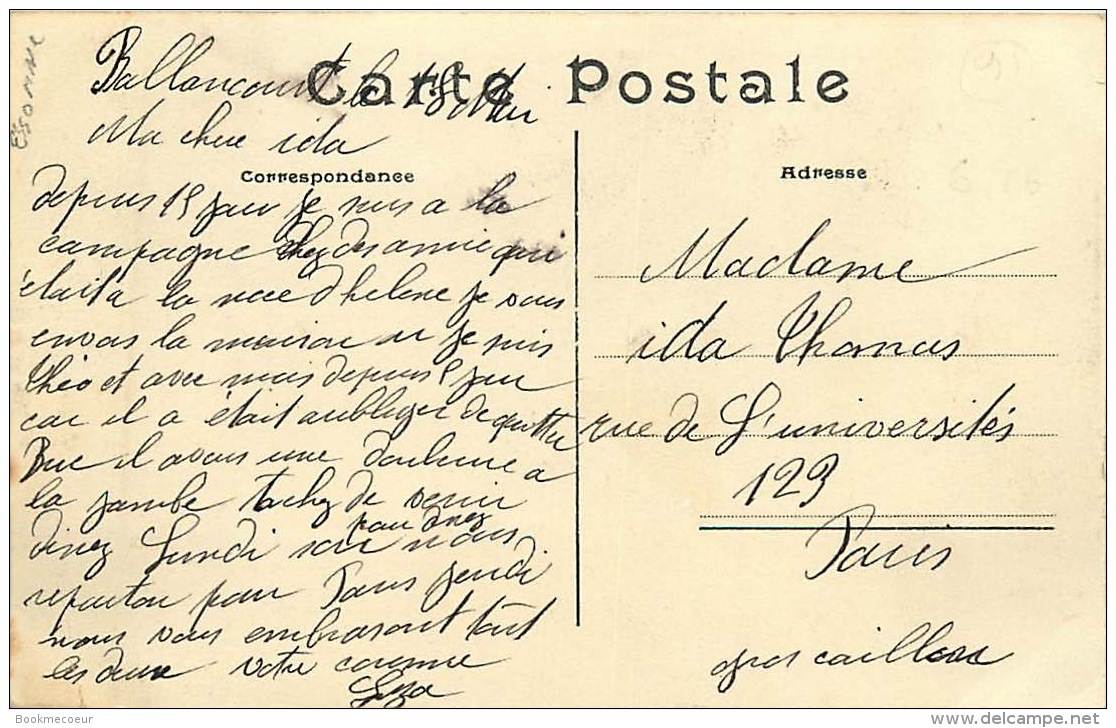 Essonne
Ballancourt le 18
Carte Postale
Ma chere ida
Correspondance
depuis 15 jour je suis a la
campagne chez des amie qui
était a la noce d helene je vous
envois la maison ou je suis
théo et avec mois depuis 8 jour
car il a était aubliger de quitter
Buc il avais une douleure a
la jambe tachez de venir
pour dinez
dinez Lundi soir nous
reparton pour Paris jeudi
nous vous embrasont tout
les deux votre cousine
Adresse
Madame
ida Thomas
rue de L'universités
129
Paris
gros cailloux
Bookmecoeur
delcampe.net